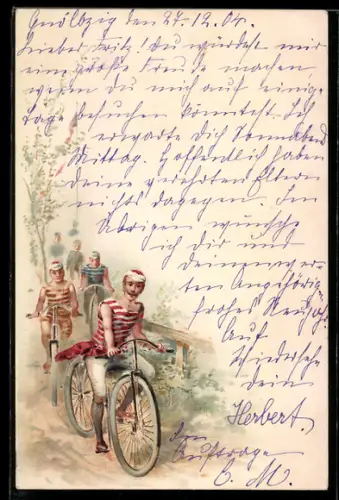 Gnölbzig den 27.12.04.
Lieber Fritz! Du würdest mir
eine große Freude machen,
wenn du mich auf einige
Tage besuchen könntest. Ich
erwarte dich Sonnabend
Mittag. Hoffentlich haben
deine geehrten Eltern
nichts dagegen. Im
Übrigen wünsche
ich dir und
deinen wer-
ten Angehörigen
frohes Neujahr.
Auf
Wiedersehn
dein
Herbert.
Im
Auftrage
E. M.